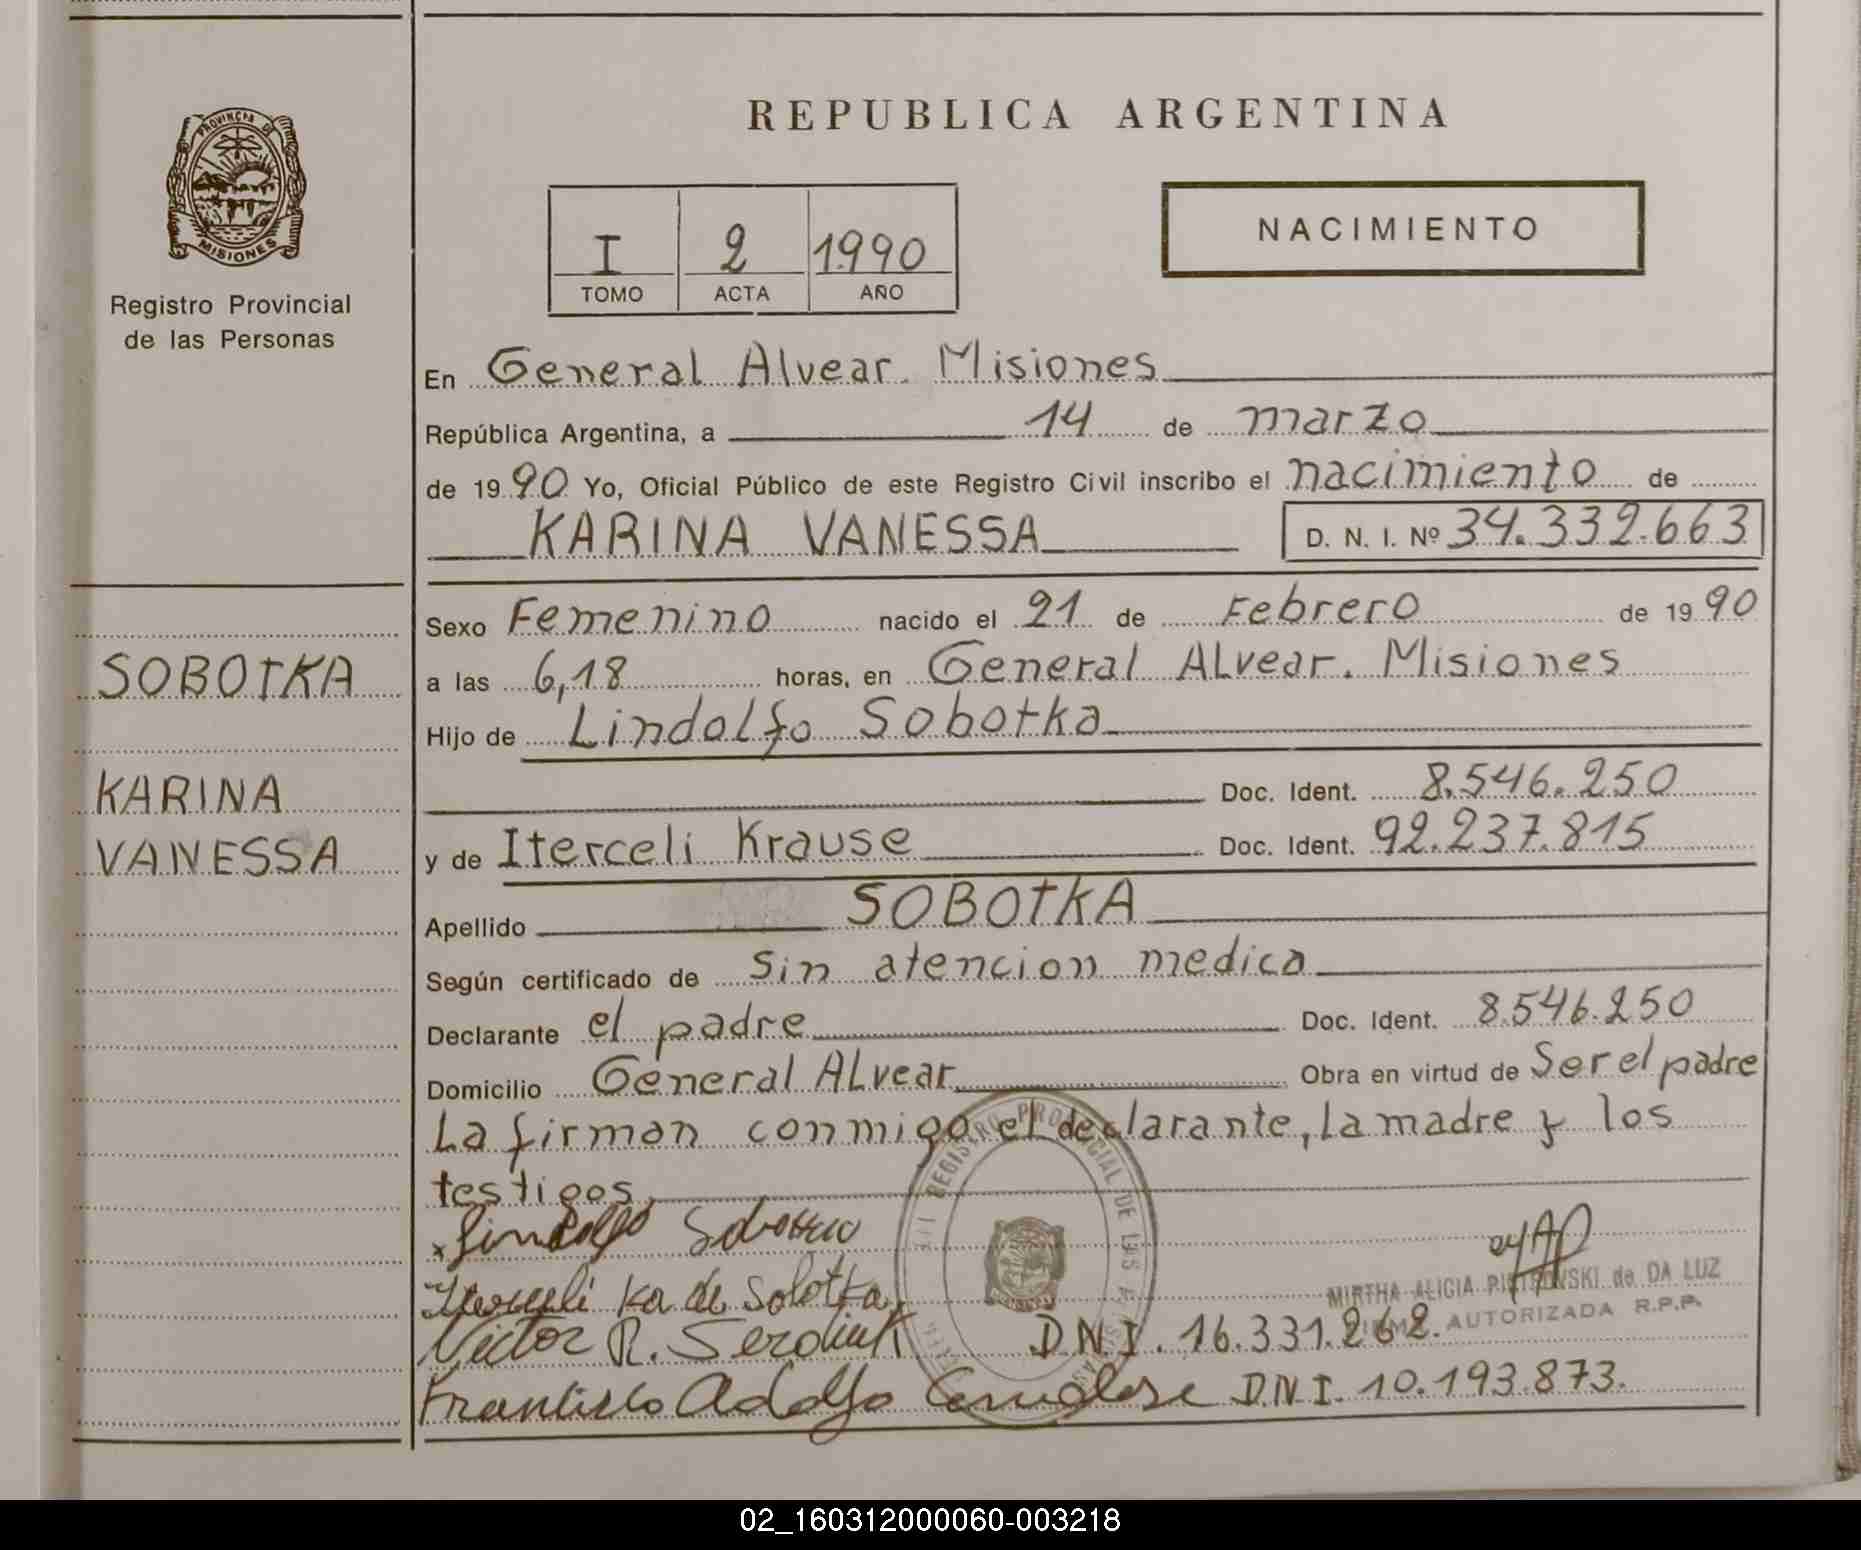 PROVINCIA DE
MISIONES
Registro Provincial
de las Personas
SOBOTKA
KARINA
VANESSA
REPUBLICA ARGENTINA
I 2 1990
TOMO ACTA AÑO
NACIMIENTO
En General Alvear. Misiones
República Argentina, a 14 de marzo
de 1990 Yo, Oficial Público de este Registro Civil inscribo el nacimiento de
KARINA VANESSA D. N. I. Nº 34.332.663
Sexo Femenino nacido el 21 de Febrero de 1990
a las 6,18 horas, en General ALvear. Misiones
Hijo de Lindolfo Sobotka
Doc. Ident. 8.546.250
y de Iterceli Krause Doc. Ident. 92.237.815
Apellido SOBOTKA
Según certificado de Sin atencion medica
Declarante el padre Doc. Ident. 8.546.250
Domicilio General ALvear Obra en virtud de Ser el padre
La firman conmigo el declarante, la madre y los
testigos.
REGISTRO PROVINCIAL DE LAS
x Lindolfo
de Sobotka
MIRTHA ALICIA de DA LUZ
AUTORIZADA R.P.P.
Victor R. D.N.I. 16.331.262.
Adolfo D.N.I. 10.193.873.
02_160312000060-003218